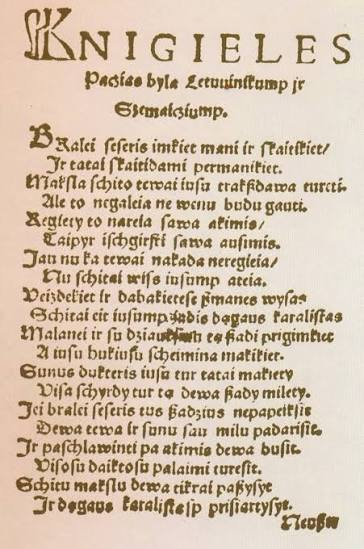 KNIGIELES
Paczias byla Letuuinikump ir
Szemaicziump.
BRalei seseris imkiet mani ir skaitikiet/
Ir tatai skaitidami permanikiet.
Makslo schito tewai iusu trakschdawa tureti
Ale to negaleia ne wenu budu gauti.
Regiety to nareia sawa akimis/
Taipyr ischgirsti sawa ausimis.
Jau nu ka tewai nekada neregieia/
Nu schitai wiss iusump ateia.
Veizdekiet ir dabakietese szmanes wysas
Schitai eit iusump szadis dagaus karalistas
Malanei ir su dziauksmu to szadi prigimkiet
A iusu hukiusu scheimina makikiet.
Sunus dukteris iusu tur tatai maketi
Visa schyrdy tur to dewa szady milety.
Jei bralei seseris tus szadzius nepapeiksit
Dewa tewa ir sunu sau milu padarisit.
Ir paschlawinti pa akimis dewa busit.
Visosu daiktosu palaimi turesit.
Schitu makslu dewa tikrai paszysyt
Ir dagaus karalistasp prisiartysyt.